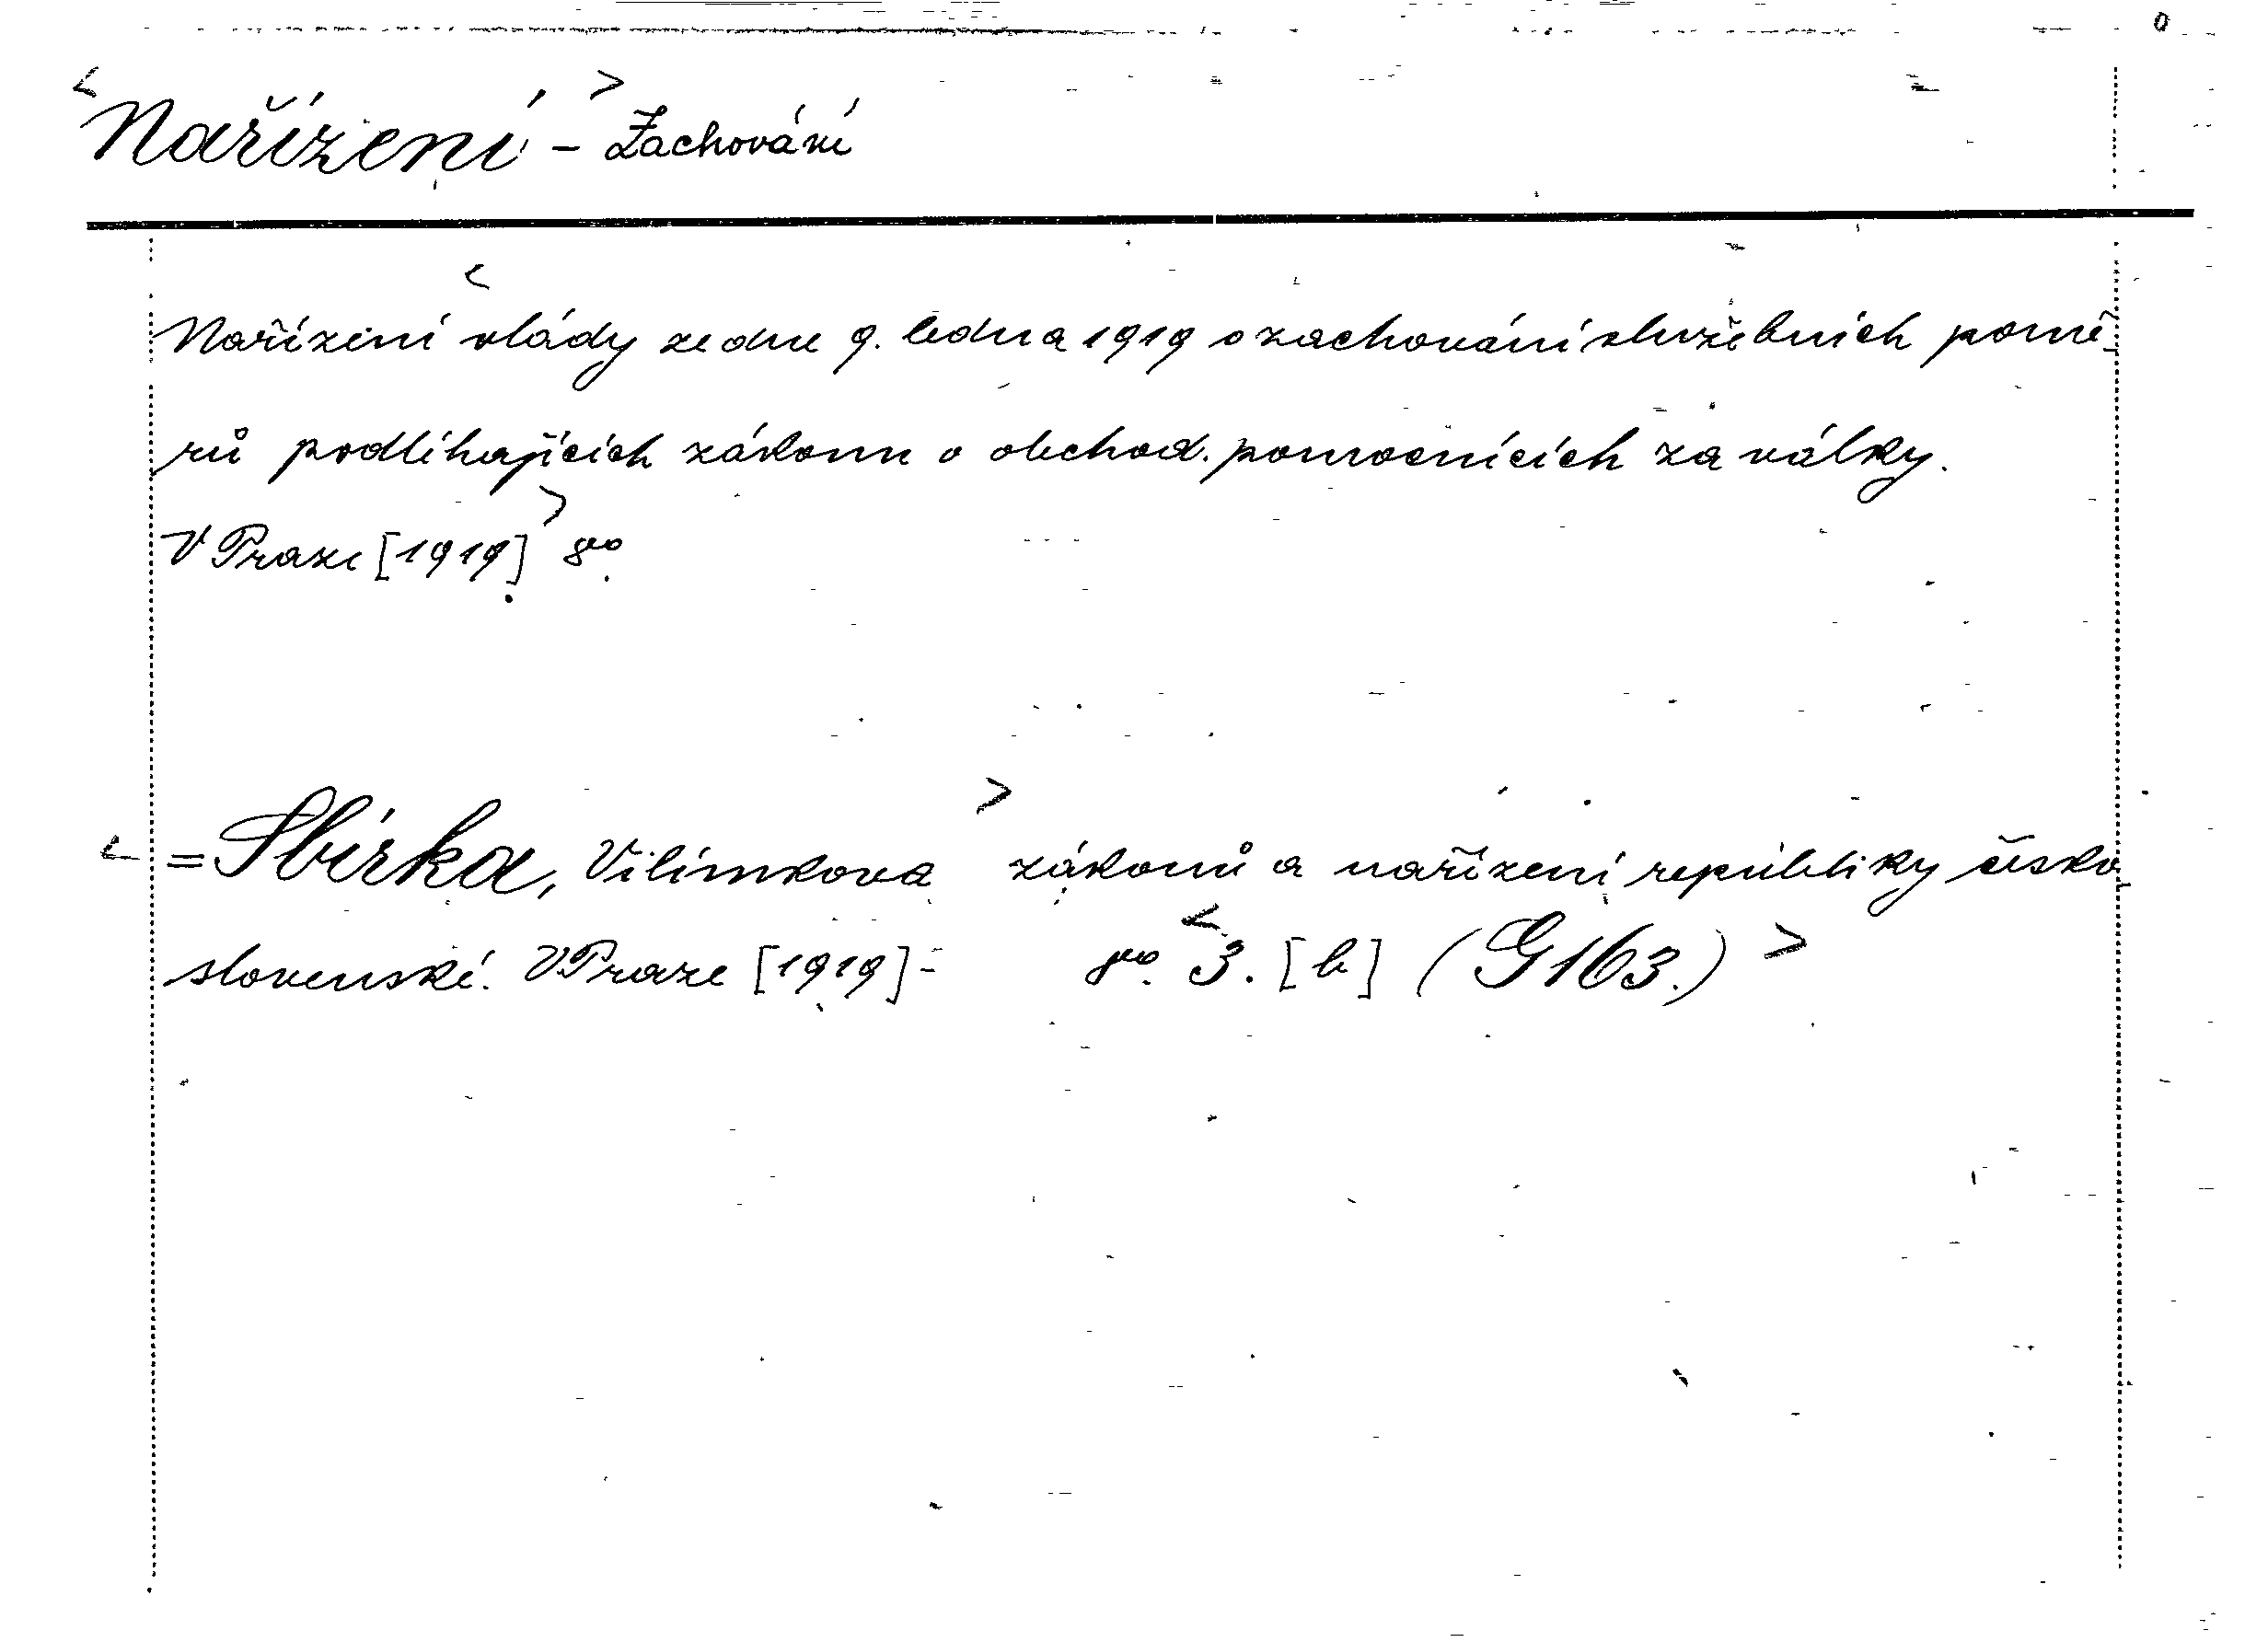 <Nařízení> - Zachování
<Nařízení vlády ze dne 9. ledna 1919 o zachování služebních pomě-
rů podléhajících zákonu o obchod. pomocnících za války.
V Praze [1919]> 8vo.
<=Sbírka, Vilímkova> zákonů a nařízení republiky česko-
slovenské. V Praze [1919]- 8vo. <3. [b] (G163.)>